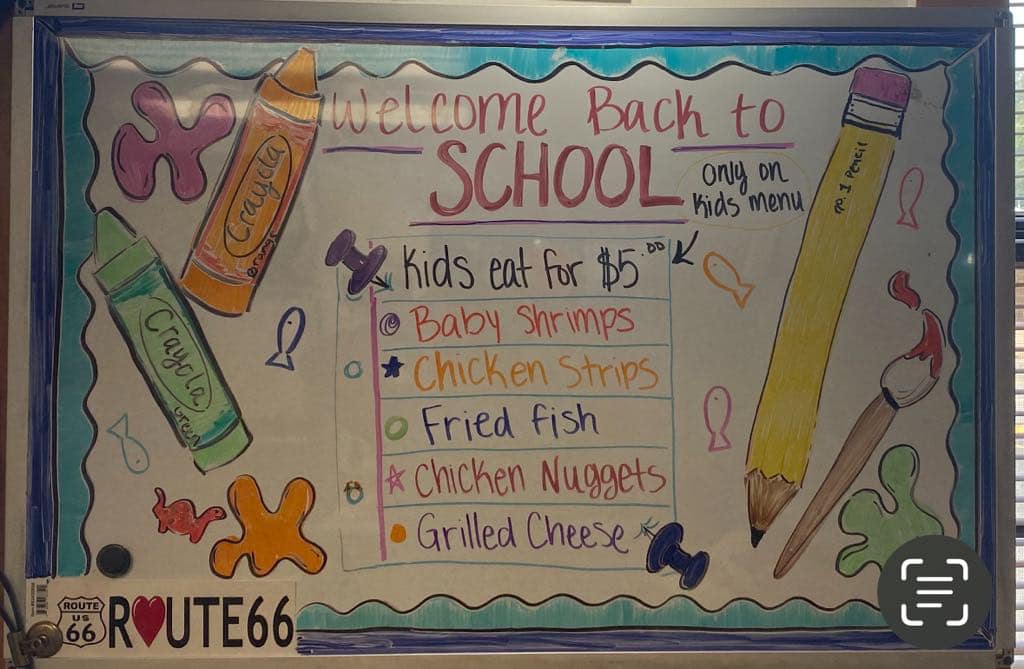 Welcome Back to
SCHOOL
only on
kids menu
Kids eat for $5.00
Baby Shrimps
Chicken Strips
Fried fish
Chicken Nuggets
Grilled Cheese
Crayola
Orange
Crayola
Green
no. 1 Pencil
ROUTE
US
66
R❤UTE66